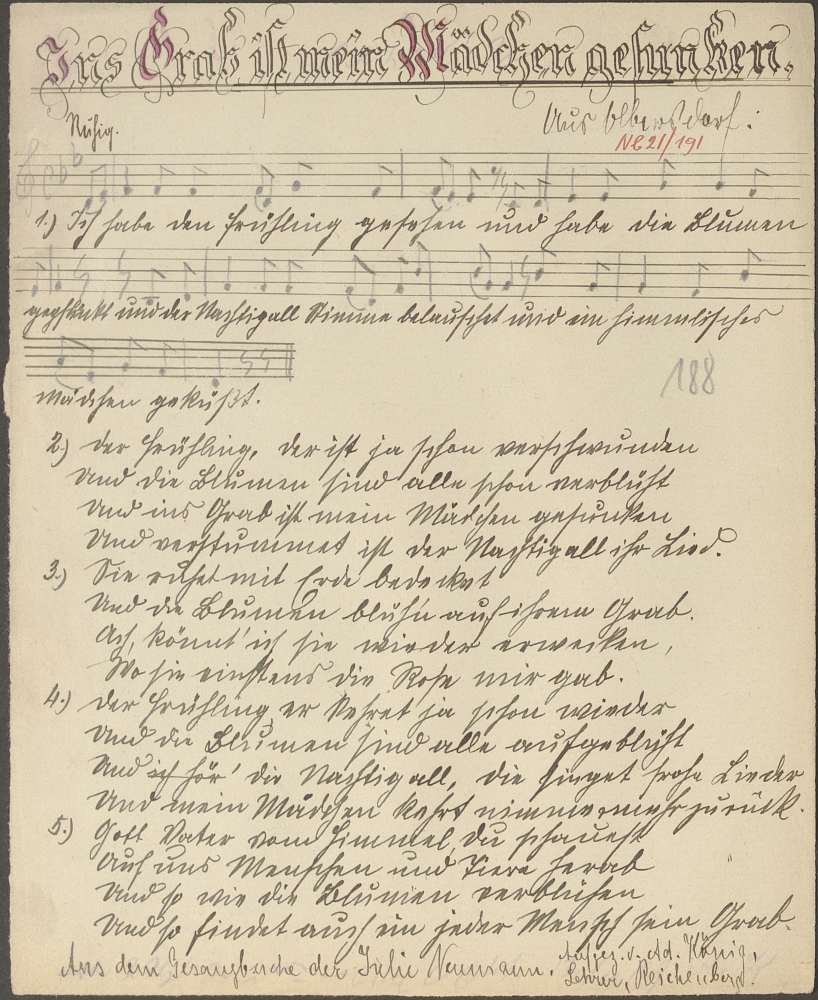 Ins Grab ist mein Mädchen gesunken.
Aus Olbersdorf:
Ruhig.
NL21/191
1.) Ich habe den Frühling gesehen und habe die Blumen
gepflückt und der Nachtigall Stimme belauschet und ein himmlisches
Mädchen geküßt.
188
2.) Der Frühling, der ist ja schon verschwunden
Und die Blumen sind alle schon verblüht
Und ins Grab ist mein Mädchen gesunken
Und verstummet ist der Nachtigall ihr Lied.
3.) Sie ruhet mit Erde bedecket
Und die Blumen blüh'n auf ihrem Grab.
Ach, könnt' ich sie wieder erwecken,
Wo sie einstens die Rose mir gab.
4.) Der Frühling er kehret ja schon wieder
Und die Blumen sind alle aufgeblüht
Und ich hör' die Nachtigall, die singet frohe Lieder
Und mein Mädchen kehrt nimmermehr zurück.
5.) Gott Vater vom Himmel, Du schauest
Auf uns Menschen und Tiere herab
Und so wie die Blumen verblühen
Und so findet auch ein jeder Mensch sein Grab.
Aus dem Gesangbuche der Julie Neumann.
Aufgez. v. Ad. König,
Lehrer, Reichenberg.